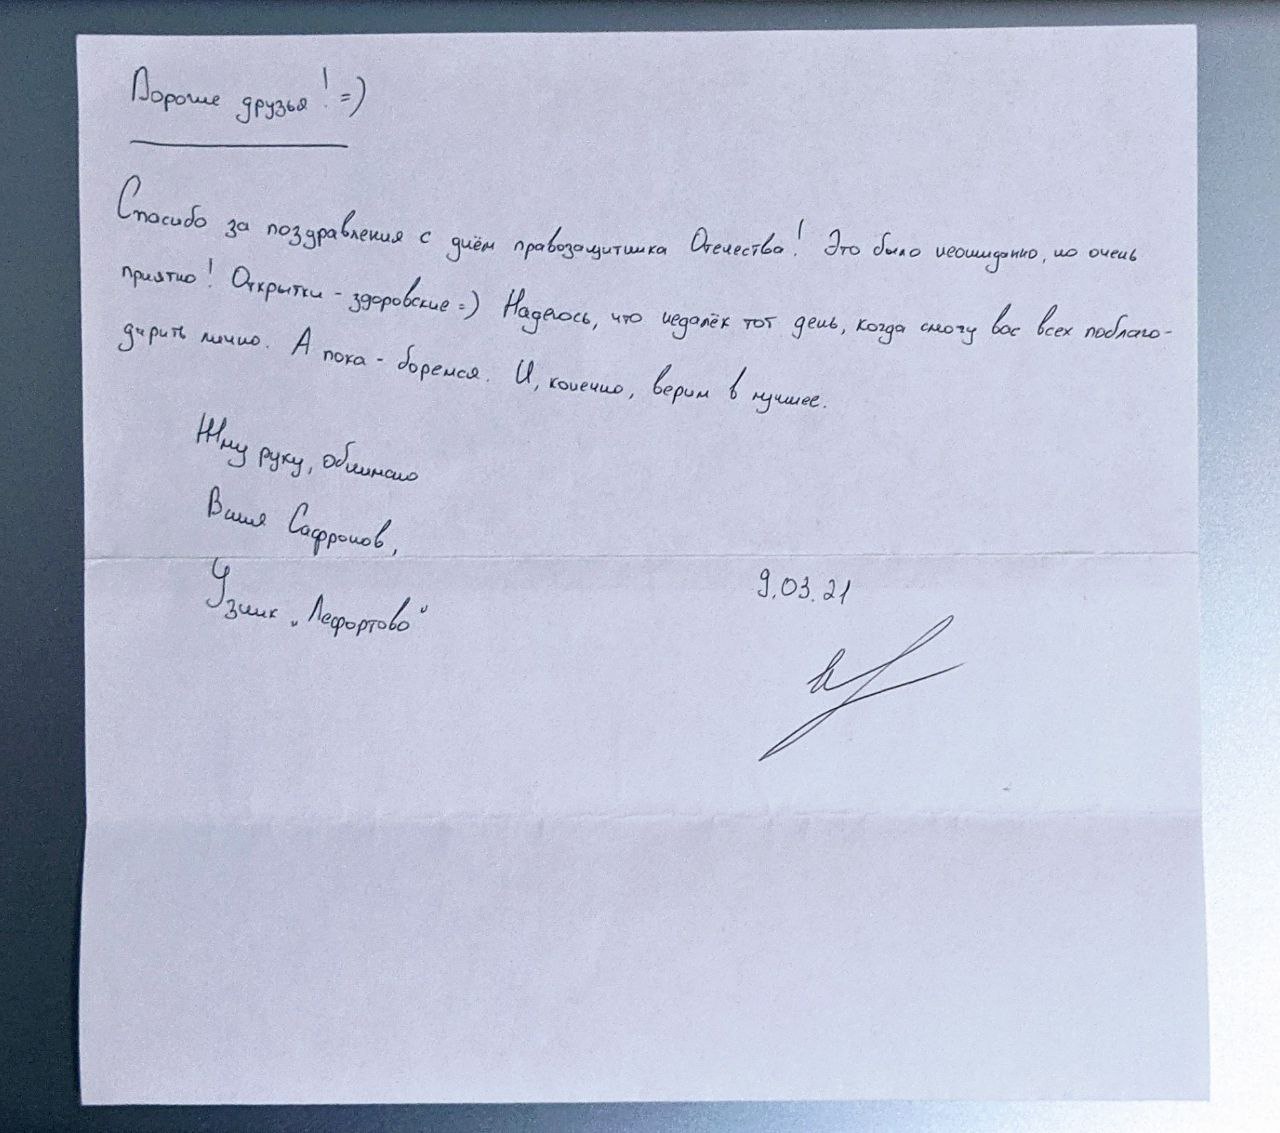 Дорогие друзья! =)
Спасибо за поздравления с днём правозащитника Отечества! Это было неожиданно, но очень
приятно! Открытки - здоровские =) Надеюсь, что недалёк тот день, когда смогу вас всех поблаго-
дарить лично. А пока - боремся. И, конечно, верим в лучшее.
Жму руку, обнимаю
Ваня Сафронов,
Узник „Лефортово"
9.03.21